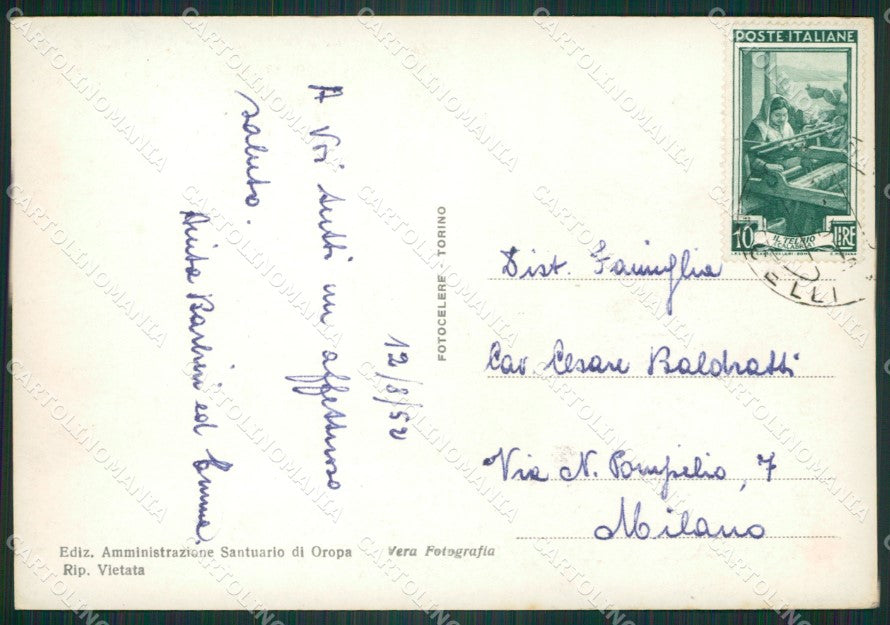 POSTE ITALIANE
10 IL TELAIO LIRE
A Voi tutti un affettuoso
saluto.
Anita Barbieri ed Emma.
12/8/52
FOTOCELERE - TORINO
Dist. Famiglia
Cav. Cesare Baldratti
Via N. Pompilio, 7
Milano
Ediz. Amministrazione Santuario di Oropa Vera Fotografia
Rip. Vietata
CARTOLINOMANIA